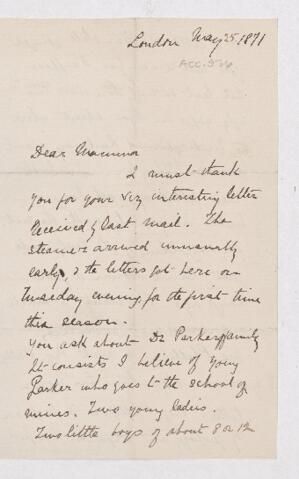 London May 25. 1871
ACC. 526
Dear Mamma
I must thank
you for your vry interesting letter
received by last mail. The
steamer arrived unusually
early, & the letters got here on
Tuesday evening for the first time
this season.
You ask about Dr Parkers family
It consists I believe of young
Parker who goes to the school of
mines. Two young ladies.
Two little boys of about 8 or 12